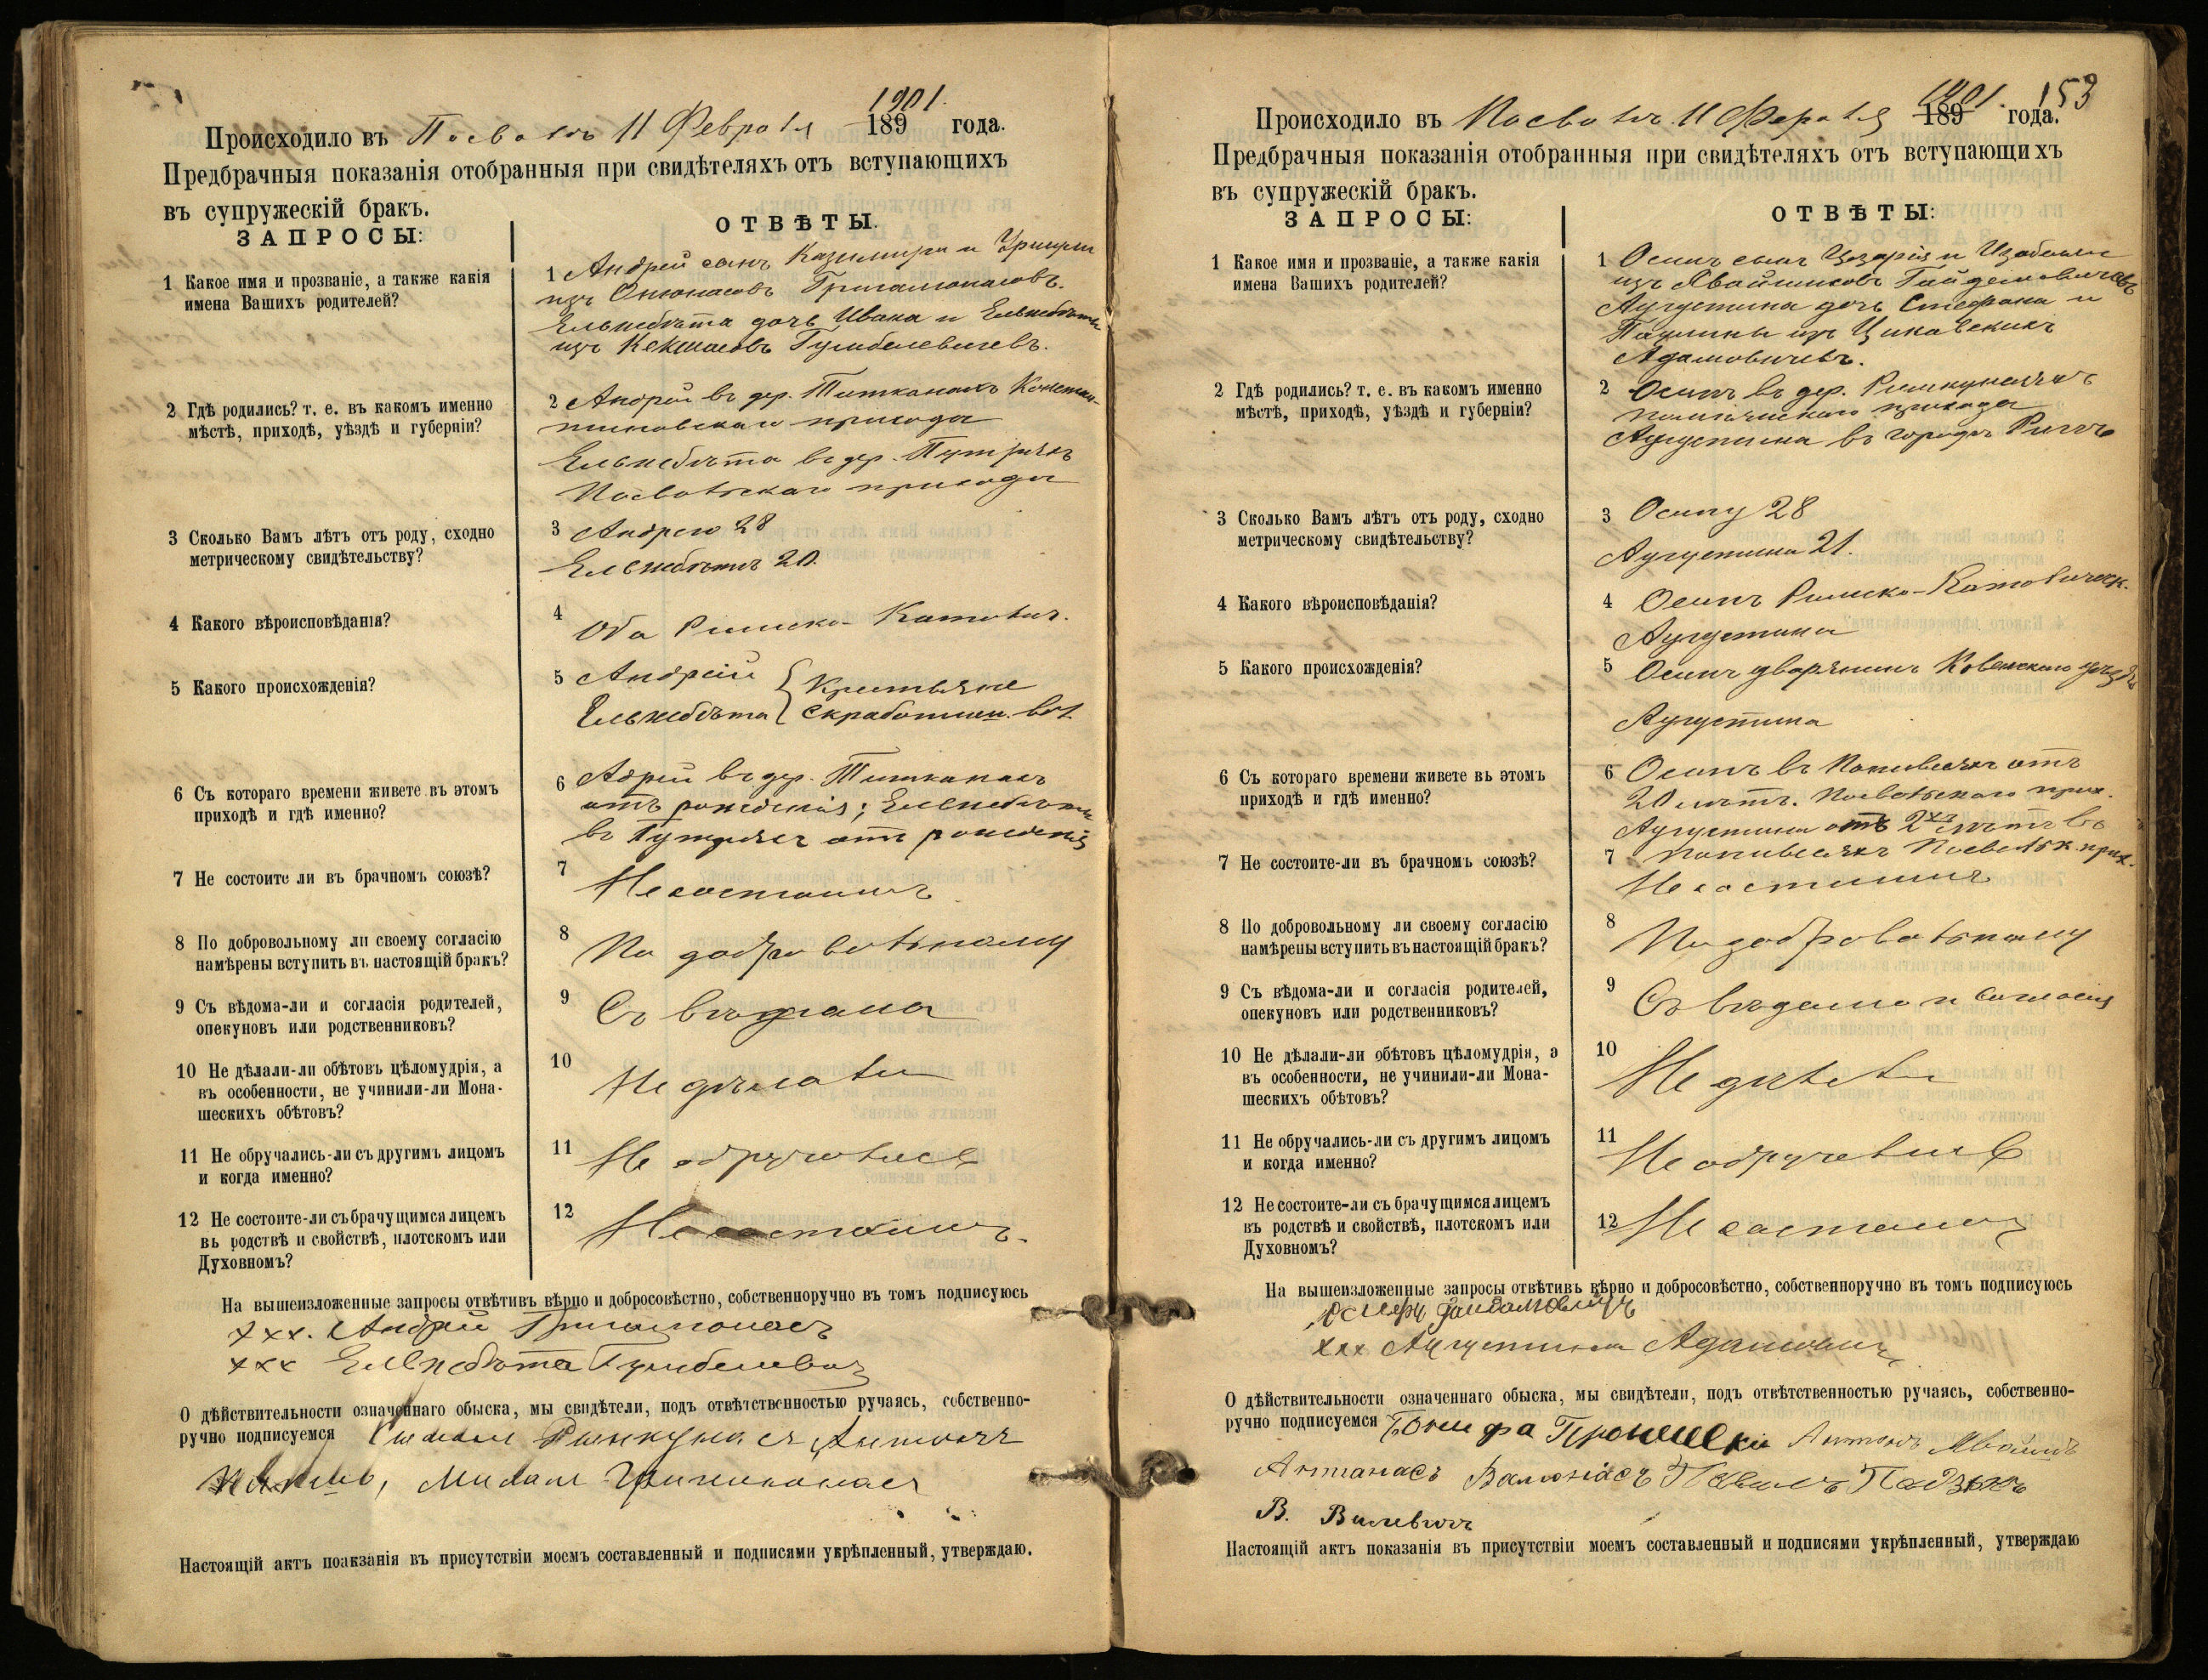 1901.
Происходило въ Посволѣ 11 Февраля 189 года.
Предбрачныя показанія отобранныя при свидѣтеляхъ отъ вступающихъ
въ супружескій бракъ.
ЗАПРОСЫ:
ОТВѢТЫ.
1 Какое имя и прозваніе, а также какія
имена Вашихъ родителей?
1 Андрей сынъ Казимира и
изъ
Ельжбѣта дочь Ивана и Ельжбѣты
изъ Гумбелевичевъ.
2 Гдѣ родились? т. е. въ какомъ именно
мѣстѣ, приходѣ, уѣздѣ и губерніи?
2 Андрей въ дер. Титканахъ Констан-
тиновскаго прихода
Ельжбѣта въ дер.
Посвольскаго прихода
3 Сколько Вамъ лѣтъ отъ роду, сходно
метрическому свидѣтельству?
3 Андрею 28
Ельжбѣтѣ 20.
4 Какого вѣроисповѣданія?
4 Оба Римско-Католич.
5 Какого происхожденія?
5 Андрей
Ельжбѣта
Крестьяне
Скработишк. вол.
6 Съ котораго времени живете въ этомъ
приходѣ и гдѣ именно?
6 въ дер. Титканахъ
отъ рожденія; Ельжбѣта
въ отъ рожденія
7 Не состоите ли въ брачномъ союзѣ?
7 Не состоимъ
8 По добровольному ли своему согласію
намѣрены вступить въ настоящій бракъ?
8 По добровольному
9 Съ вѣдома-ли и согласія родителей,
опекуновъ или родственниковъ?
9 Съ вѣдома
10 Не дѣлали-ли обѣтовъ цѣломудрія, а
въ особенности, не учинили-ли Мона-
шескихъ обѣтовъ?
10 Не дѣлали
11 Не обручались-ли съ другимъ лицомъ
и когда именно?
11 Не обручались
12 Не состоите-ли съ брачущимся лицемъ
въ родствѣ и свойствѣ, плотскомъ или
Духовномъ?
12 Не состоимъ.
На вышеизложенные запросы отвѣтивъ вѣрно и добросовѣстно, собственноручно въ томъ подписуюсь
xxx. Андрей
xxx Ельжбѣта Гумбелевичъ
О дѣйствительности означеннаго обыска, мы свидѣтели, подъ отвѣтственностью ручаясь, собственно-
ручно подписуемся
Настоящій актъ поакзанія въ присутствіи моемъ составленный и подписями укрѣпленный, утверждаю.
1901. 153
Происходило въ Посволѣ 11 189 года.
Предбрачныя показанія отобранныя при свидѣтеляхъ отъ вступающихъ
въ супружескій бракъ.
ЗАПРОСЫ:
ОТВѢТЫ:
1 Какое имя и прозваніе, а также какія
имена Вашихъ родителей?
1 Осипъ сынъ Цезарія и Изабеллы
изъ
Аугустина дочь Стефана и
Паулины изъ
Адамовичевъ.
2 Гдѣ родились? т. е. въ какомъ именно
мѣстѣ, приходѣ, уѣздѣ и губерніи?
2 Осипъ въ дер.
прихода
Аугустина въ городѣ Ригѣ
3 Сколько Вамъ лѣтъ отъ роду, сходно
метрическому свидѣтельству?
3 Осипу 28
Аугустина 21.
4 Какого вѣроисповѣданія?
4 Осипъ Римско-Католическ.
Аугустина
5 Какого происхожденія?
5 Осипъ дворянинъ Ковенскаго уѣзда
Аугустина
6 Съ котораго времени живете въ этомъ
приходѣ и гдѣ именно?
6 Осипъ въ отъ
20 лѣтъ. Посвольскаго прих.
Аугустина отъ 2хъ лѣтъ въ
Посвольск. прих.
7 Не состоите-ли въ брачномъ союзѣ?
7 Не состоимъ
8 По добровольному ли своему согласію
намѣрены вступить въ настоящій бракъ?
8 По добровольному
9 Съ вѣдома-ли и согласія родителей,
опекуновъ или родственниковъ?
9 Съ вѣдома и согласія
10 Не дѣлали-ли обѣтовъ цѣломудрія, э
въ особенности, не учинили-ли Мона-
шескихъ обѣтовъ?
10 Не дѣлали
11 Не обручались-ли съ другимъ лицомъ
и когда именно?
11 Не обручались
12 Не состоите-ли съ брачущимся лицемъ
въ родствѣ и свойствѣ, плотскомъ или
Духовномъ?
12 Не состоимъ
На вышеизложенные запросы отвѣтивъ вѣрно и добросовѣстно, собственноручно въ томъ подписуюсь
xxx Аугустина Адамовичъ
О дѣйствительности означеннаго обыска, мы свидѣтели, подъ отвѣтственностью ручаясь, собственно-
ручно подписуемся
Антанасъ
В.
Настоящій актъ показанія въ присутствіи моемъ составленный и подписями укрѣпленный, утверждаю